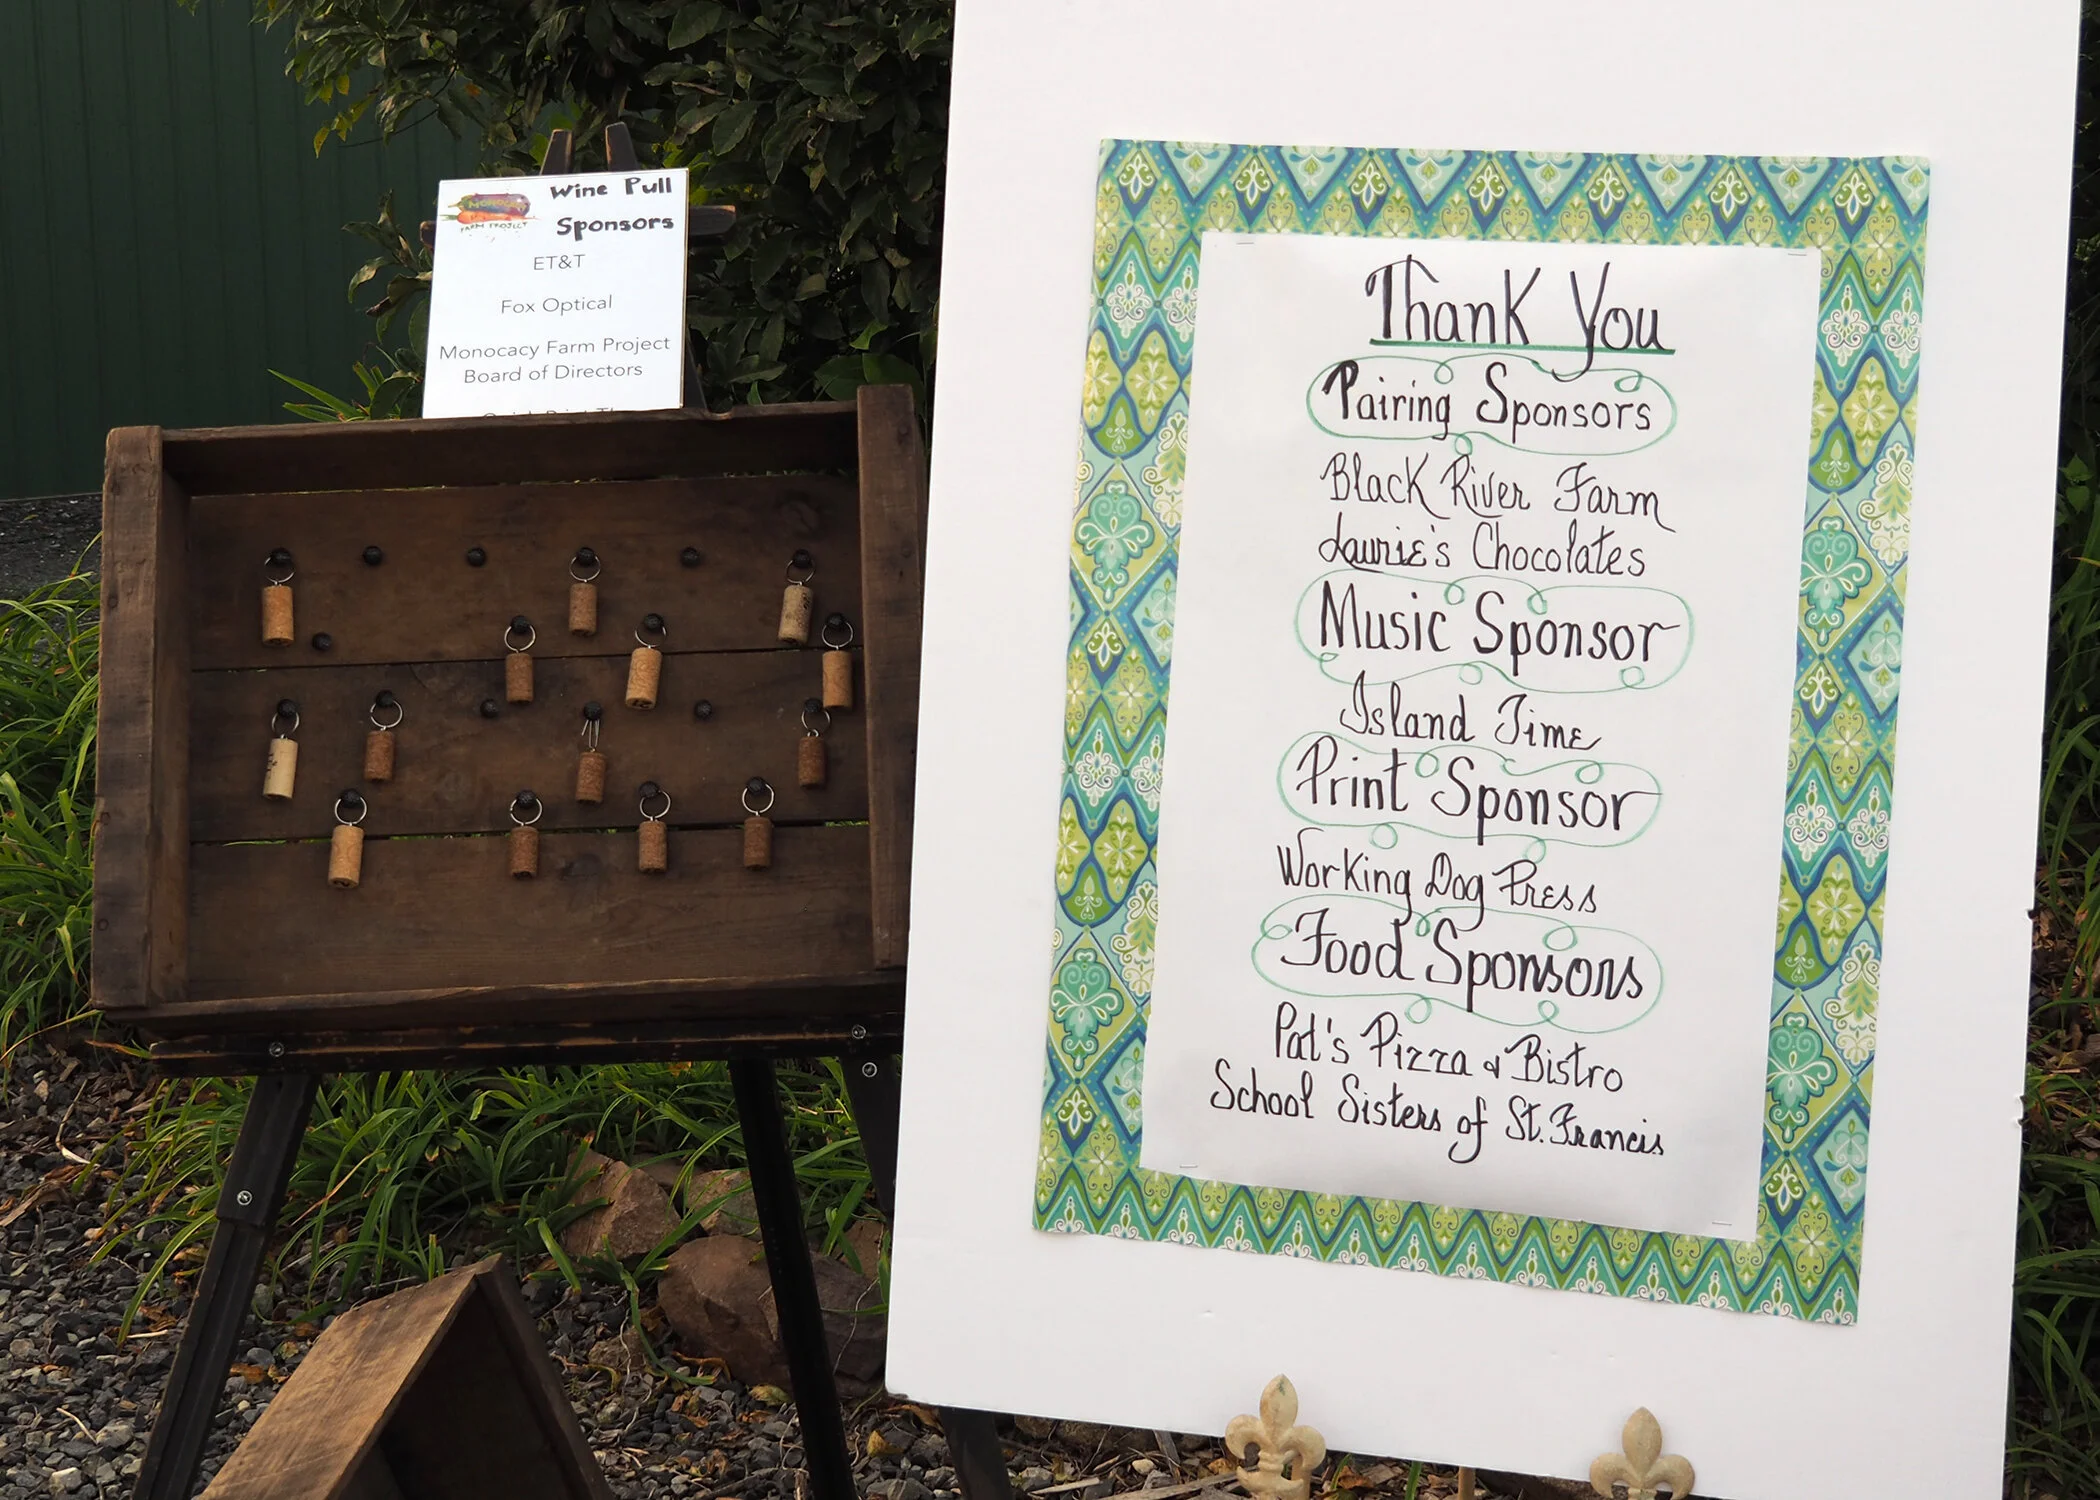 MONOCACY
FARM PROJECT
Wine Pull
Sponsors
ET&T
Fox Optical
Monocacy Farm Project
Board of Directors
Thank You
Pairing Sponsors
Black River Farm
Laurie's Chocolates
Music Sponsor
Island Time
Print Sponsor
Working Dog Press
Food Sponsors
Pat's Pizza & Bistro
School Sisters of St. Francis